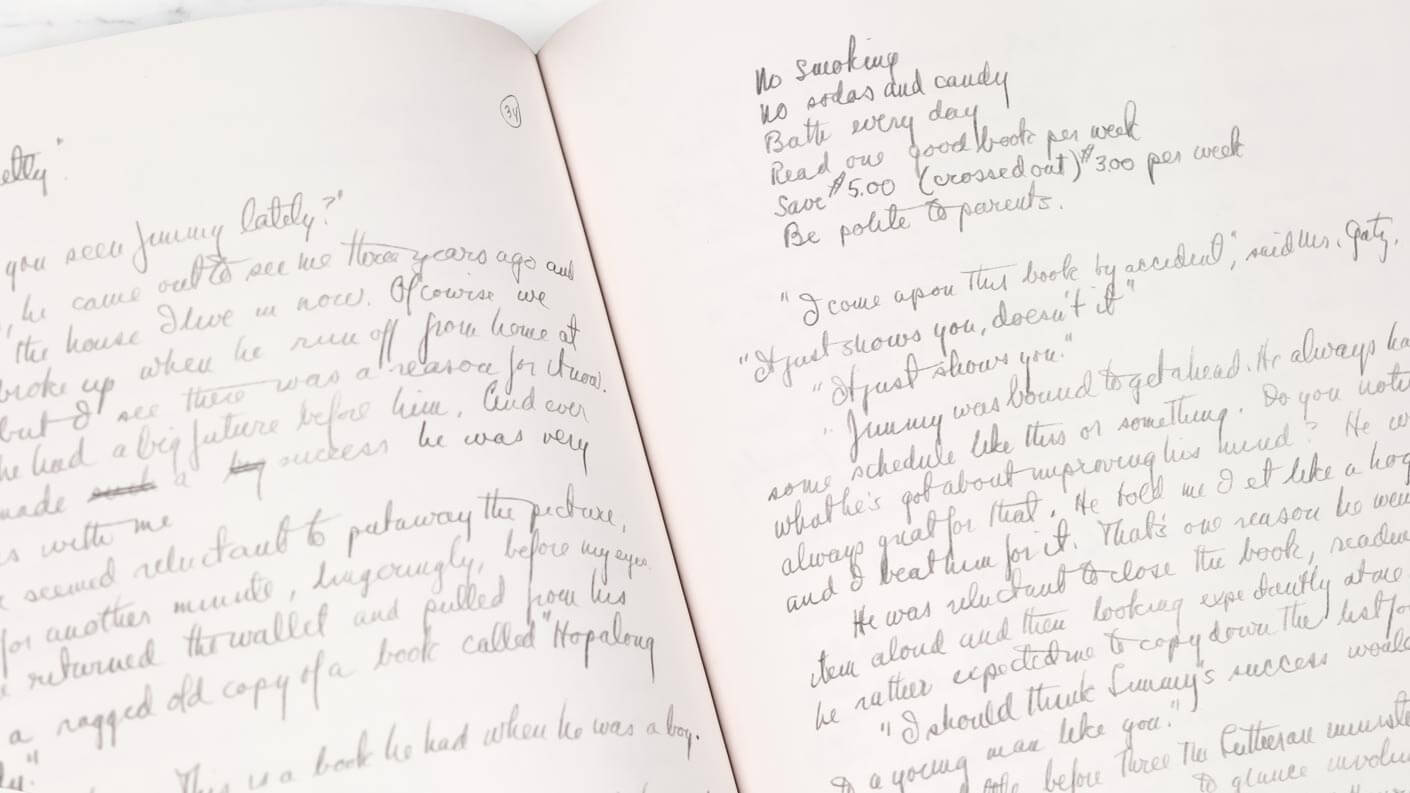 34
elty."
you seen Jimmy lately?"
, he came out to see me three years ago and
the house I live in now. Ofcourse we
broke up when he run off from home at
but I see there was a reason for it now.
he had a big future before him. And ever
made a success he was very
s with me
seemed reluctant to put away the picture,
for another minute, lingeringly, before my eyes.
returned the wallet and pulled from his
a ragged old copy of a book called "Hopalong
This is a book he had when he was a boy.
No smoking
No sodas and candy
Bath every day
Read one good book per week
Save $5.00 (crossed out) $3.00 per week
Be polite to parents.
"I come apon this book by accident", said Mr. Gatz.
"It just shows you, doesn't it"
"It just shows you."
"Jimmy was bound to get ahead. He always ha
some schedule like this or something. Do you noti
what he's got about improving his mind? He w
always great for that. He told me I et like a hog
and I beat him for it. That's one reason he wen
He was reluctant to close the book, readin
item aloud and then looking expectantly at me.
he rather expected me to copy down the list fo
"I should think Jimmy's success would
to a young man like you."
before three the Lutheran ministe
to glance involu